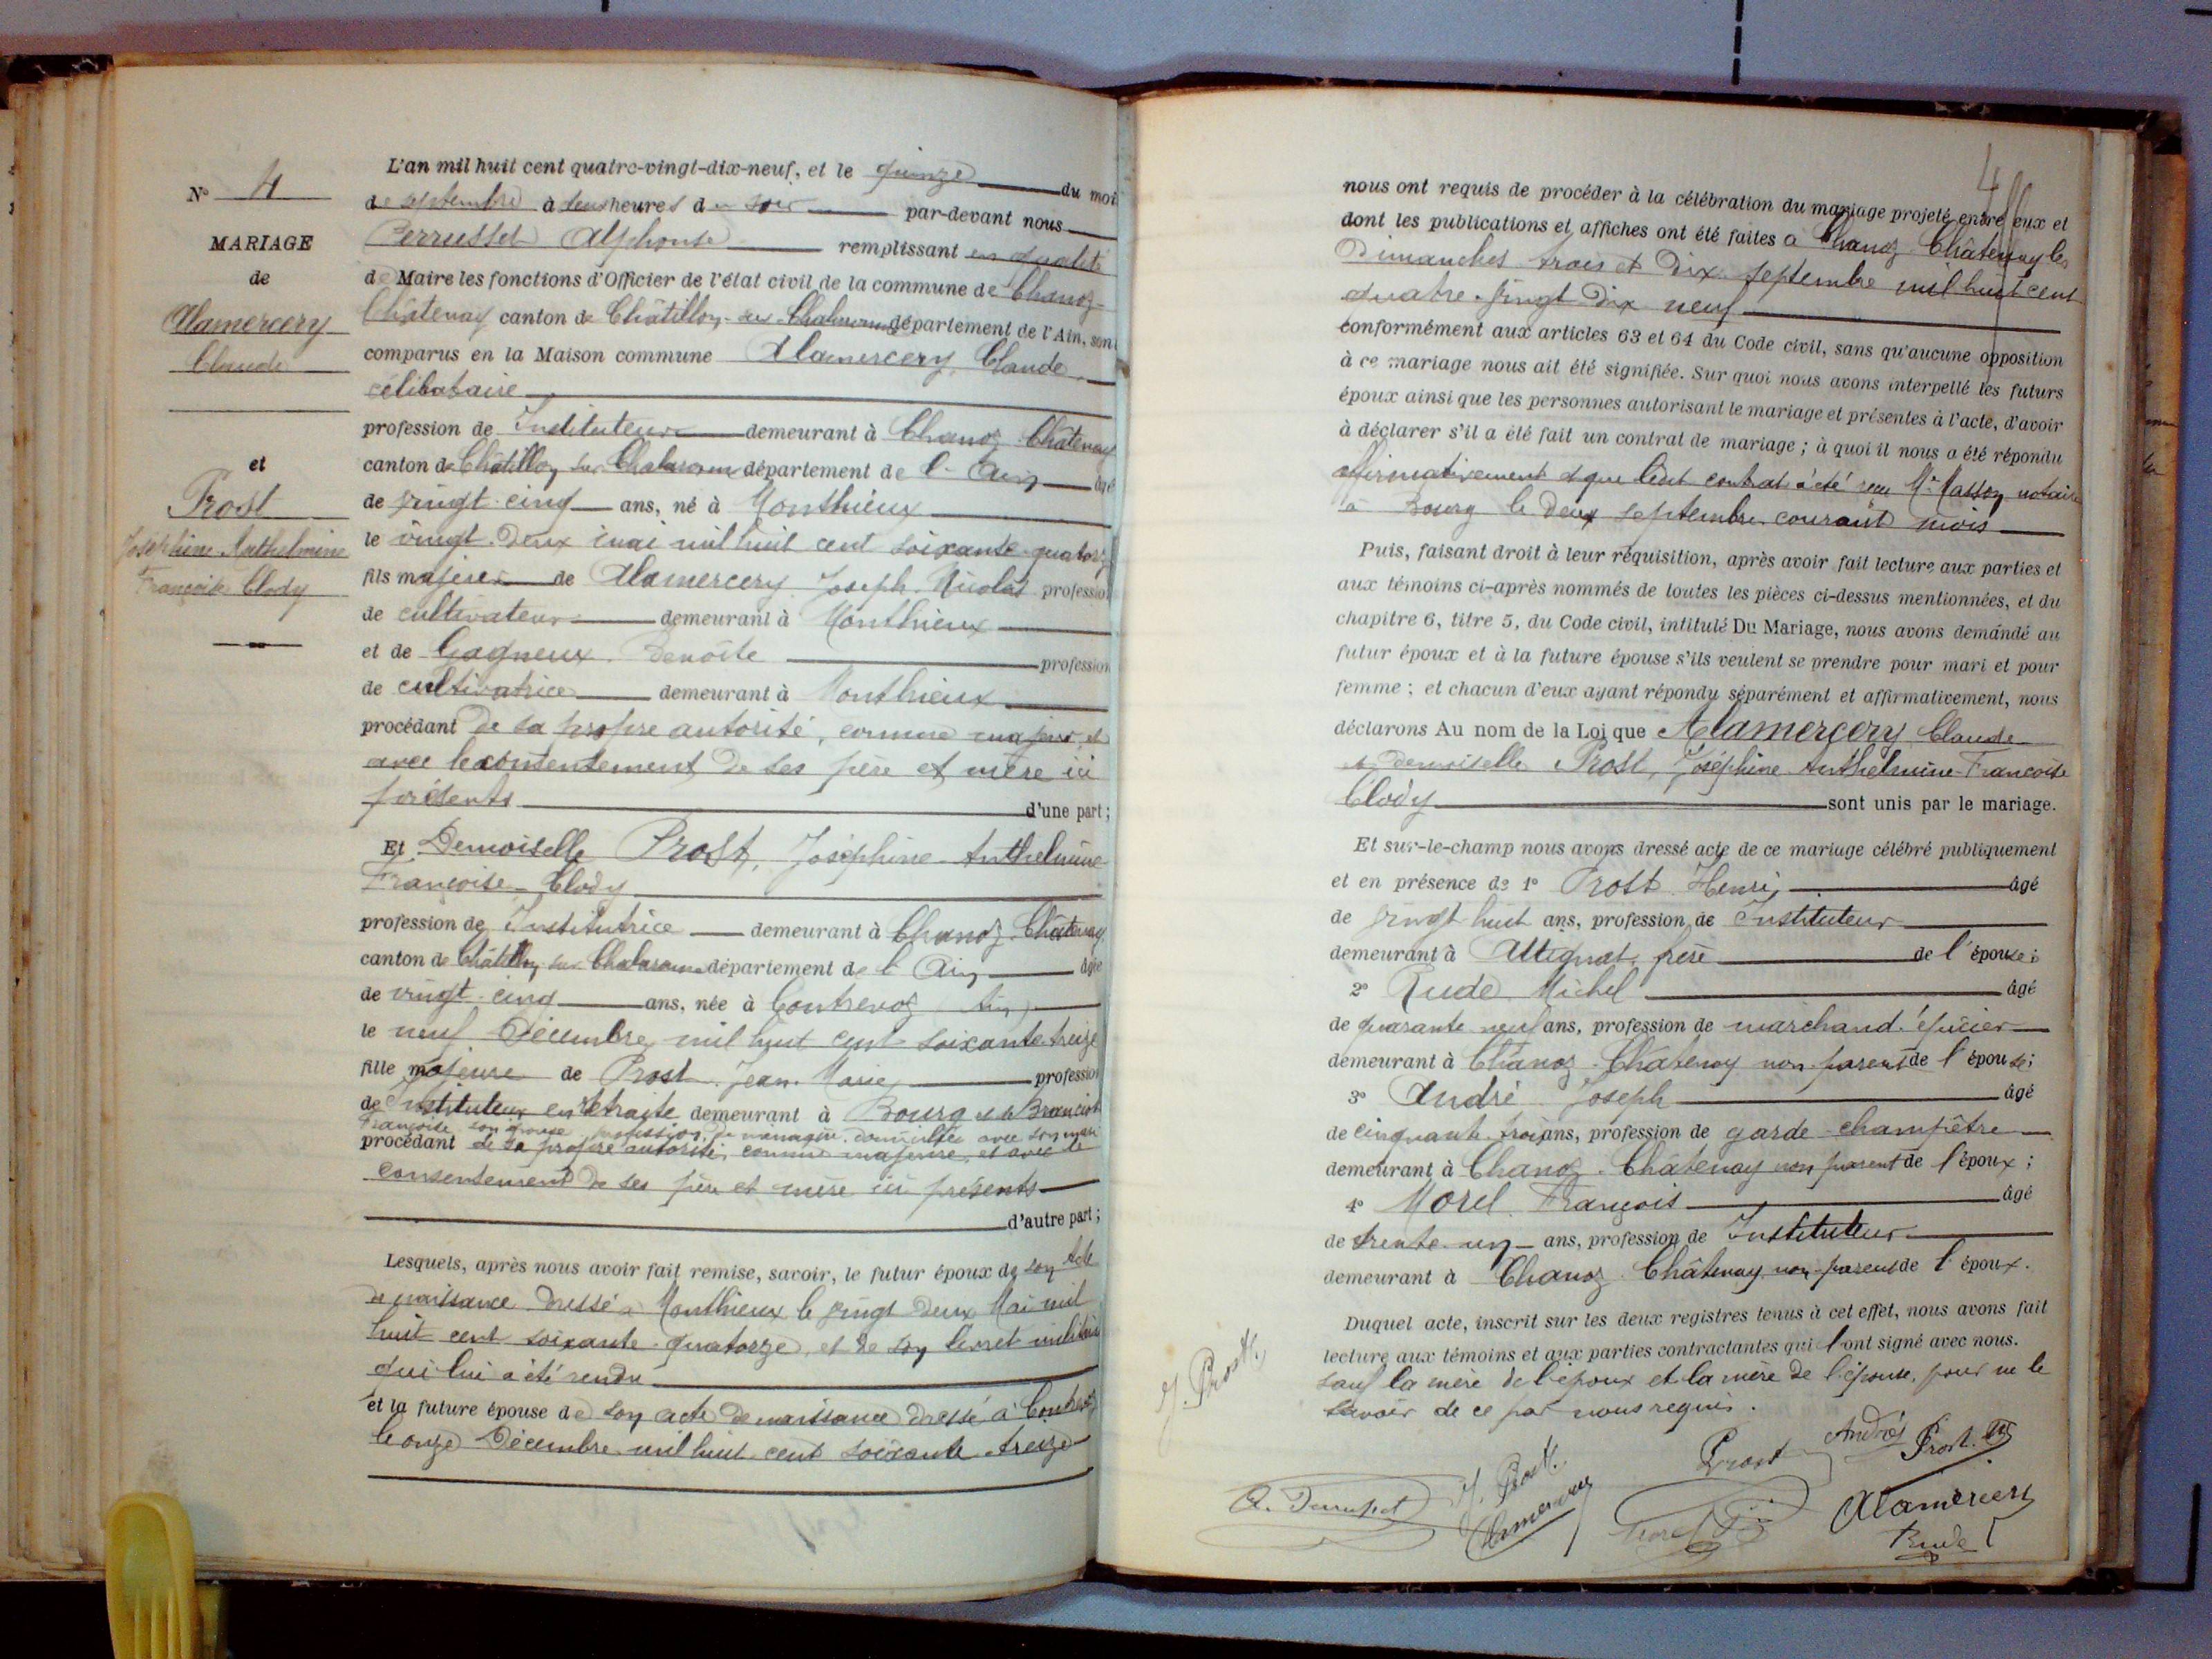 N° 4
MARIAGE
de
Alamercery
Claude
et
Prost
Joséphine Anthelmine
Françoise Clody
L'an mil huit cent quatre-vingt-dix-neuf, et le quinze du moi
de septembre à deux heures du soir par-devant nous
Perrusset Alphonse remplissant en qualité
de Maire les fonctions d'Officier de l'état civil de la commune de Chanoz-
Châtenay canton de Châtillon-sur-Chalaronne département de l'Ain, sont
comparus en la Maison commune Alamercery, Claude,
célibataire
profession de Instituteur demeurant à Chanoz-Châtenay
canton de Châtillon sur Chalaronne département de l'Ain âgé
de vingt-cinq ans, né à Monthieux
le vingt-deux mai mil huit cent soixante-quatorze
fils majeur de Alamercery Joseph-Nicolas profession
de cultivateur demeurant à Monthieux
et de Gagneux Benoîte profession
de cultivatrice demeurant à Monthieux
procédant de sa propre autorité, comme majeur, et
avec le consentement de ses père et mère ici
présents d'une part;
Et Demoiselle Prost, Joséphine-Anthelmine
Françoise-Clody
profession de Institutrice demeurant à Chanoz-Châtenay
canton de Châtillon sur Chalaronne département de l'Ain âgée
de vingt-cinq ans, née à Contrevoz (Ain)
le neuf Décembre mil huit cent soixante-treize
fille majeure de Prost Jean-Marie, profession
de Instituteur en retraite demeurant à Bourg et de Branciot
Françoise son épouse profession de ménagère domiciliée avec son mari
procédant de sa propre autorité, comme majeure, et avec le
consentement de ses père et mère ici présents
d'autre part;
Lesquels, après nous avoir fait remise, savoir, le futur époux de son Acte
de naissance dressé à Monthieux le vingt-deux Mai mil
huit cent soixante-quatorze, et de son livret militaire
qui lui a été rendu
et la future épouse de son acte de naissance dressé à Contrevoz
le onze Décembre mil huit cent soixante-treize
nous ont requis de procéder à la célébration du mariage projeté entre eux et
dont les publications et affiches ont été faites à Chanoz-Châtenay les
Dimanches trois et Dix septembre mil huit cent
quatre-vingt Dix neuf
conformément aux articles 63 et 64 du Code civil, sans qu'aucune opposition
à ce mariage nous ait été signifiée. Sur quoi nous avons interpellé les futurs
époux ainsi que les personnes autorisant le mariage et présentes à l'acte, d'avoir
à déclarer s'il a été fait un contrat de mariage; à quoi il nous a été répondu
affirmativement et que ledit contrat a été reçu Me Masson notaire
à Bourg le deux septembre courant mois
Puis, faisant droit à leur réquisition, après avoir fait lecture aux parties et
aux témoins ci-après nommés de toutes les pièces ci-dessus mentionnées, et du
chapitre 6, titre 5, du Code civil, intitulé Du Mariage, nous avons demandé au
futur époux et à la future épouse s'ils veulent se prendre pour mari et pour
femme; et chacun d'eux ayant répondu séparément et affirmativement, nous
déclarons Au nom de la Loi que Alamercery Claude
et demoiselle Prost, Joséphine-Anthelmine-Françoise
Clody sont unis par le mariage.
Et sur-le-champ nous avons dressé acte de ce mariage célébré publiquement
et en présence de 1° Prost Henri, âgé
de vingt-huit ans, profession de Instituteur
demeurant à Attignat, frère de l'épouse;
2° Rude Michel âgé
de quarante-neuf ans, profession de marchand-épicier
demeurant à Chanoz-Châtenay non parent de l'épouse;
3° André Joseph âgé
de cinquante-trois ans, profession de garde-champêtre
demeurant à Chanoz-Châtenay non parent de l'époux;
4° Morel François âgé
de trente-un ans, profession de Instituteur
demeurant à Chanoz-Châtenay non parent de l'époux.
Duquel acte, inscrit sur les deux registres tenus à cet effet, nous avons fait
lecture aux témoins et aux parties contractantes qui l'ont signé avec nous.
sauf la mère de l'époux et la mère de l'épouse, pour ne le
savoir de ce par nous requis.
J. Prost
André Prost
Prost
A. Perrusset J. Prost Alamercery
Alamercery Morel
Rude